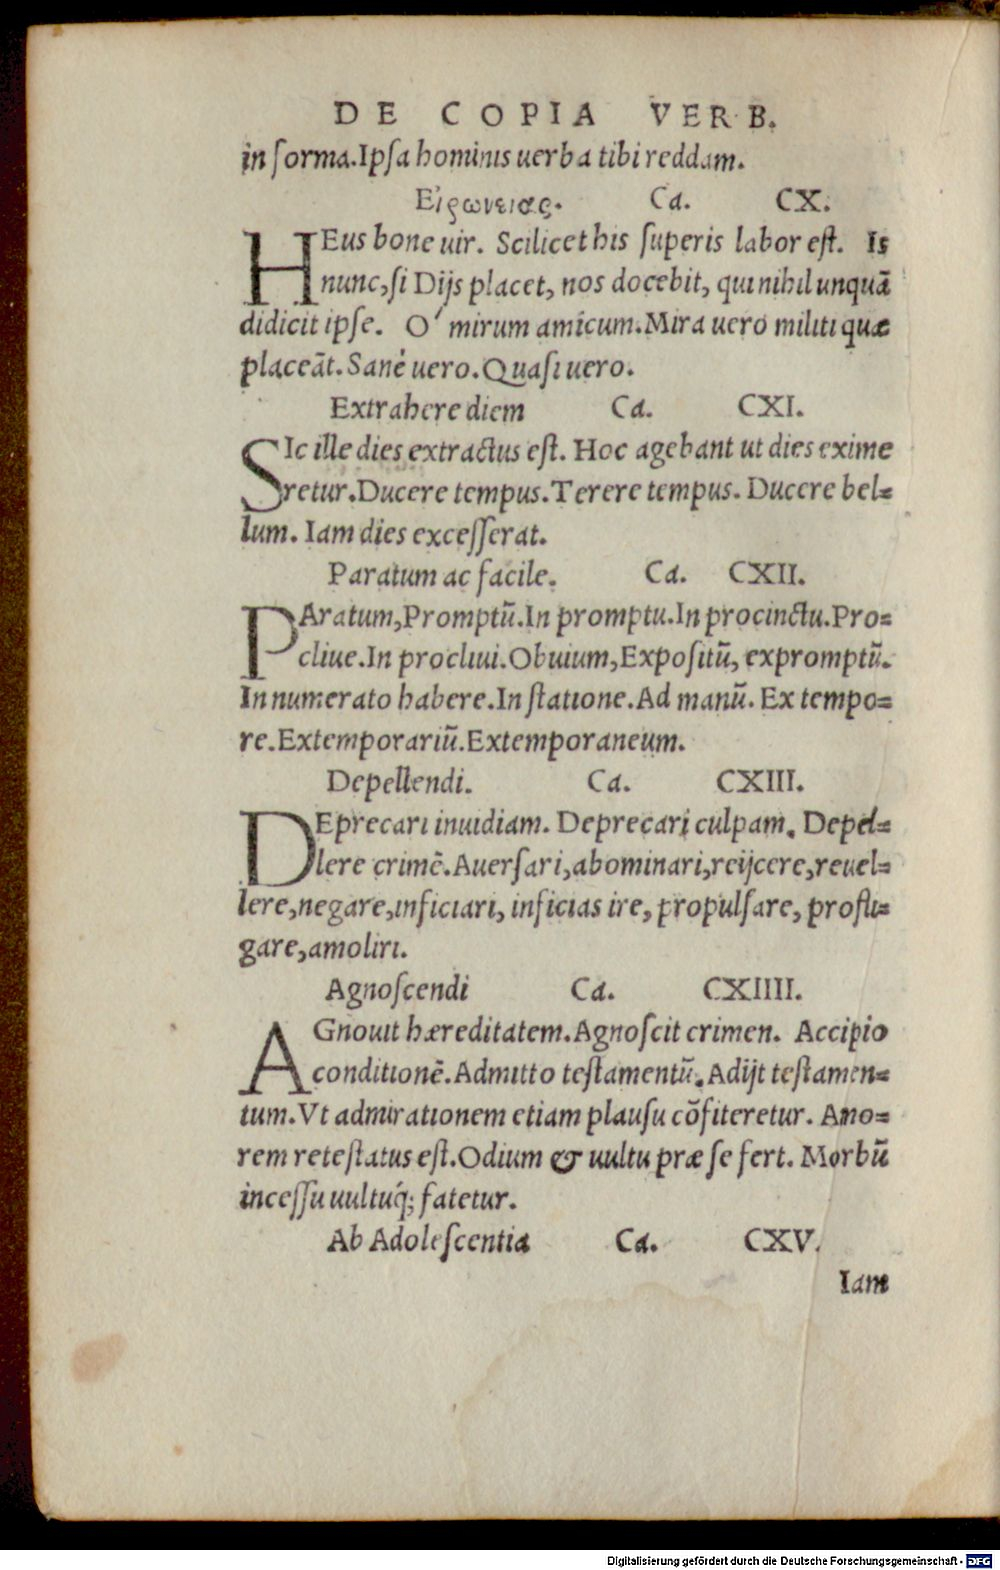 DE COPIA VERB.
in forma.Ipſa hominis uerba tibi reddam.
Εἰρωνειας. Ca. CX.
HEus bone uir. Scilicet his ſuperis labor eſt. Is
nunc,ſi Dijs placet, nos docebit, qui nihil unquā
didicit ipſe. O' mirum amicum.Mira uero militi quæ
placeāt.Sanè uero.Quaſi uero.
Extrahere diem Ca. CXI.
SIc ille dies extractus eſt. Hoc agebant ut dies exime
retur.Ducere tempus.Terere tempus. Ducere bel=
lum. Iam dies exceſſerat.
Paratum ac facile. Ca. CXII.
PAratum,Promptū.In promptu.In procinctu.Pro=
cliue.In procliui.Obuium,Expoſitū, expromptū.
In numerato habere.In ſtatione.Ad manū. Ex tempo=
re.Extemporariū.Extemporaneum.
Depellendi. Ca. CXIII.
DEprecari inuidiam. Deprecari culpam. Depel=
lere crimē.Auerſari,abominari,reijcere,reuel=
lere,negare,inficiari, inficias ire, propulſare, profli=
gare,amoliri.
Agnoſcendi Ca. CXIIII.
AGnouit hæreditatem.Agnoſcit crimen. Accipio
conditionē.Admitto teſtamentū.Adijt teſtamen=
tum.Vt admirationem etiam plauſu cōfiteretur. Amo=
rem reteſtatus eſt.Odium & uultu præ ſe fert. Morbū
inceſſu uultuq́; fatetur.
Ab Adoleſcentia Ca. CXV.
Iam
Digitalisierung gefördert durch die Deutsche Forschungsgemeinschaft - DFG